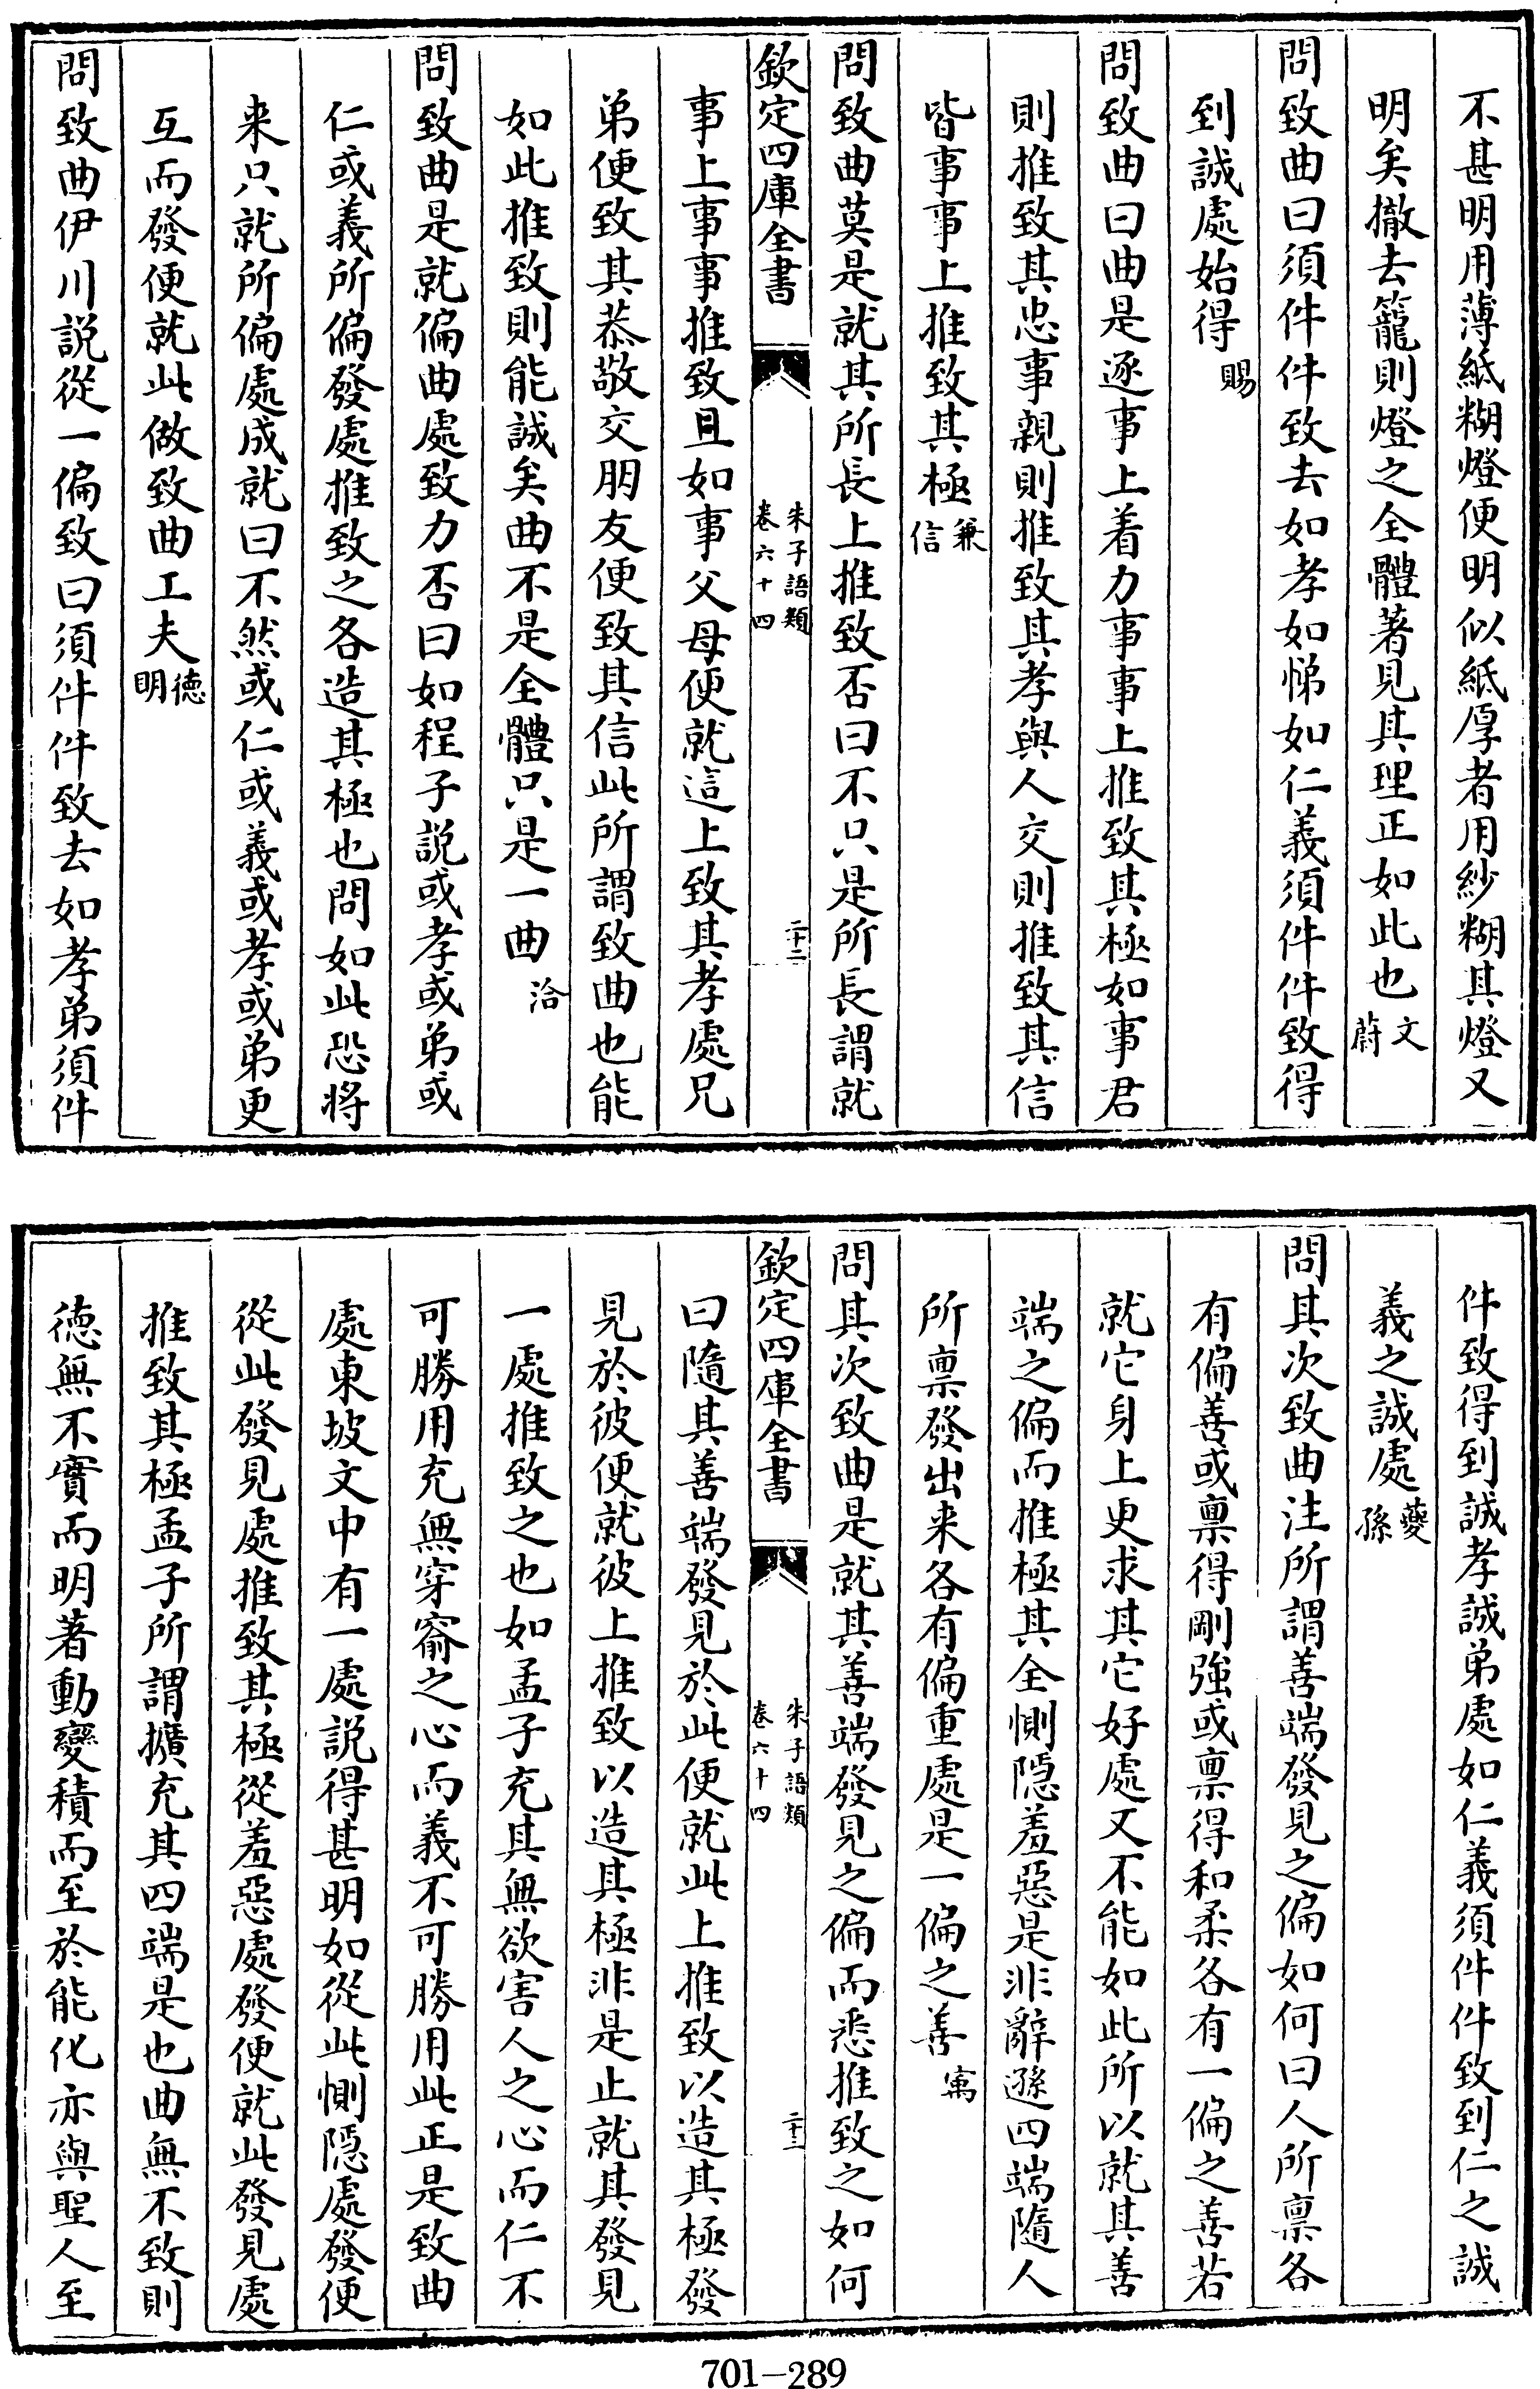 不甚明用薄紙糊燈便明似紙厚者用紗糊其燈又
明矣撤去籠則燈之全體著見其理正如此也文蔚
問致曲曰須件件致去如孝如悌如仁義須件件致得
到誠處始得賜
問致曲曰曲是逐事上着力事事上推致其極如事君
則推致其忠事親則推致其孝與人交則推致其信
皆事事上推致其極兼信
問致曲莫是就其所長上推致否曰不只是所長謂就
欽定四庫全書
朱子語類
卷六十四
二十二
事上事事推致且如事父母便就這上致其孝處兄
弟便致其恭敬交朋友便致其信此所謂致曲也能
如此推致則能誠矣曲不是全體只是一曲洽
問致曲是就偏曲處致力否曰如程子説或孝或弟或
仁或義所偏發處推致之各造其極也問如此恐將
来只就所偏處成就曰不然或仁或義或孝或弟更
互而發便就此做致曲工夫徳明
問致曲伊川説從一偏致曰須件件致去如孝弟須件
件致得到誠孝誠弟處如仁義須件件致到仁之誠
義之誠處夔孫
問其次致曲注所謂善端發見之偏如何曰人所禀各
有偏善或禀得剛強或禀得和柔各有一偏之善若
就它身上更求其它好處又不能如此所以就其善
端之偏而推極其全惻隠羞惡是非辭遜四端隨人
所禀發出来各有偏重處是一偏之善㝢
問其次致曲是就其善端發見之偏而悉推致之如何
欽定四庫全書
朱子語類
卷六十四
二十三
曰隨其善端發見於此便就此上推致以造其極發
見於彼便就彼上推致以造其極非是止就其發見
一處推致之也如孟子充其無欲害人之心而仁不
可勝用充無穿窬之心而義不可勝用此正是致曲
處東坡文中有一處説得甚明如從此惻隠處發便
從此發見處推致其極從羞惡處發便就此發見處
推致其極孟子所謂擴充其四端是也曲無不致則
徳無不實而明著動變積而至於能化亦與聖人至
701-289